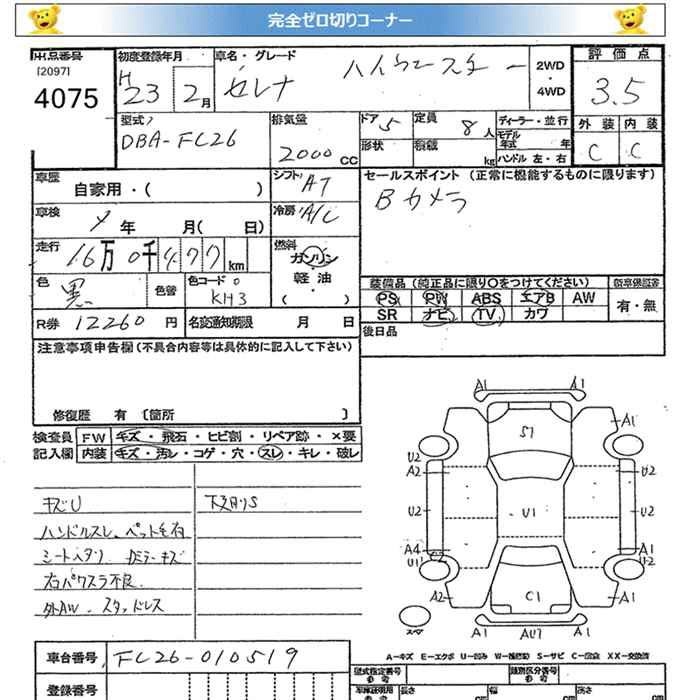 完全ゼロ切りコーナー
出品番号 [2097] 4075
初度登録年月 H23 2月
車名・グレード セレナ ハイウェースター
2WD ・ 4WD
評価点 3.5
外装 C 内装 C
型式 DBA-FC26
排気量 2000 CC
ドア 5 形状
定員 8人 積載 kg
ディーラー・並行
モデル年式 年
ハンドル 左・右
車歴 自家用・( )
シフト AT
セールスポイント (正常に機能するものに限ります)
Bカメラ
車検 年 月( 日)
冷房 A/C
走行 16万0千477km
燃料 ガソリン 軽油・ ( )
色 黒 色替
色コード KH3
装備品(純正品に限り○をつけてください)
PS PW ABS エアB AW
SR ナビ TV カワ
新車保証書 有・無
R券 12260円
名変通知期限 月 日
後日品
注意事項申告欄(不具合内容等は具体的に記入して下さい)
修復歴 有 〔箇所 〕
検査員 FW キズ・飛石・ヒビ割・リペア跡・×要
記入欄 内装 キズ・汚レ・コゲ・穴・スレ・キレ・破レ
キズU
下廻りS
ハンドルスレ、ペット毛有
シートヘタリ Dミラーキズ
右パワスラ不良
外AW、スタッドレス
A1 A1
S1 A1
U2 A2 U2
U2 U1 U2
A4 A1
U1 U2
A2 C1 A2
スペア A1 AU7 A1
A-キズ E-エクボ U-凹み W-補修跡 S-サビ C-腐食 XX-交換済
車台番号 FC26-010519
登録番号
型式指定番号 参考
類別区分番号 参考
車庫証明用 参考 長さ cm 幅 cm 高さ cm